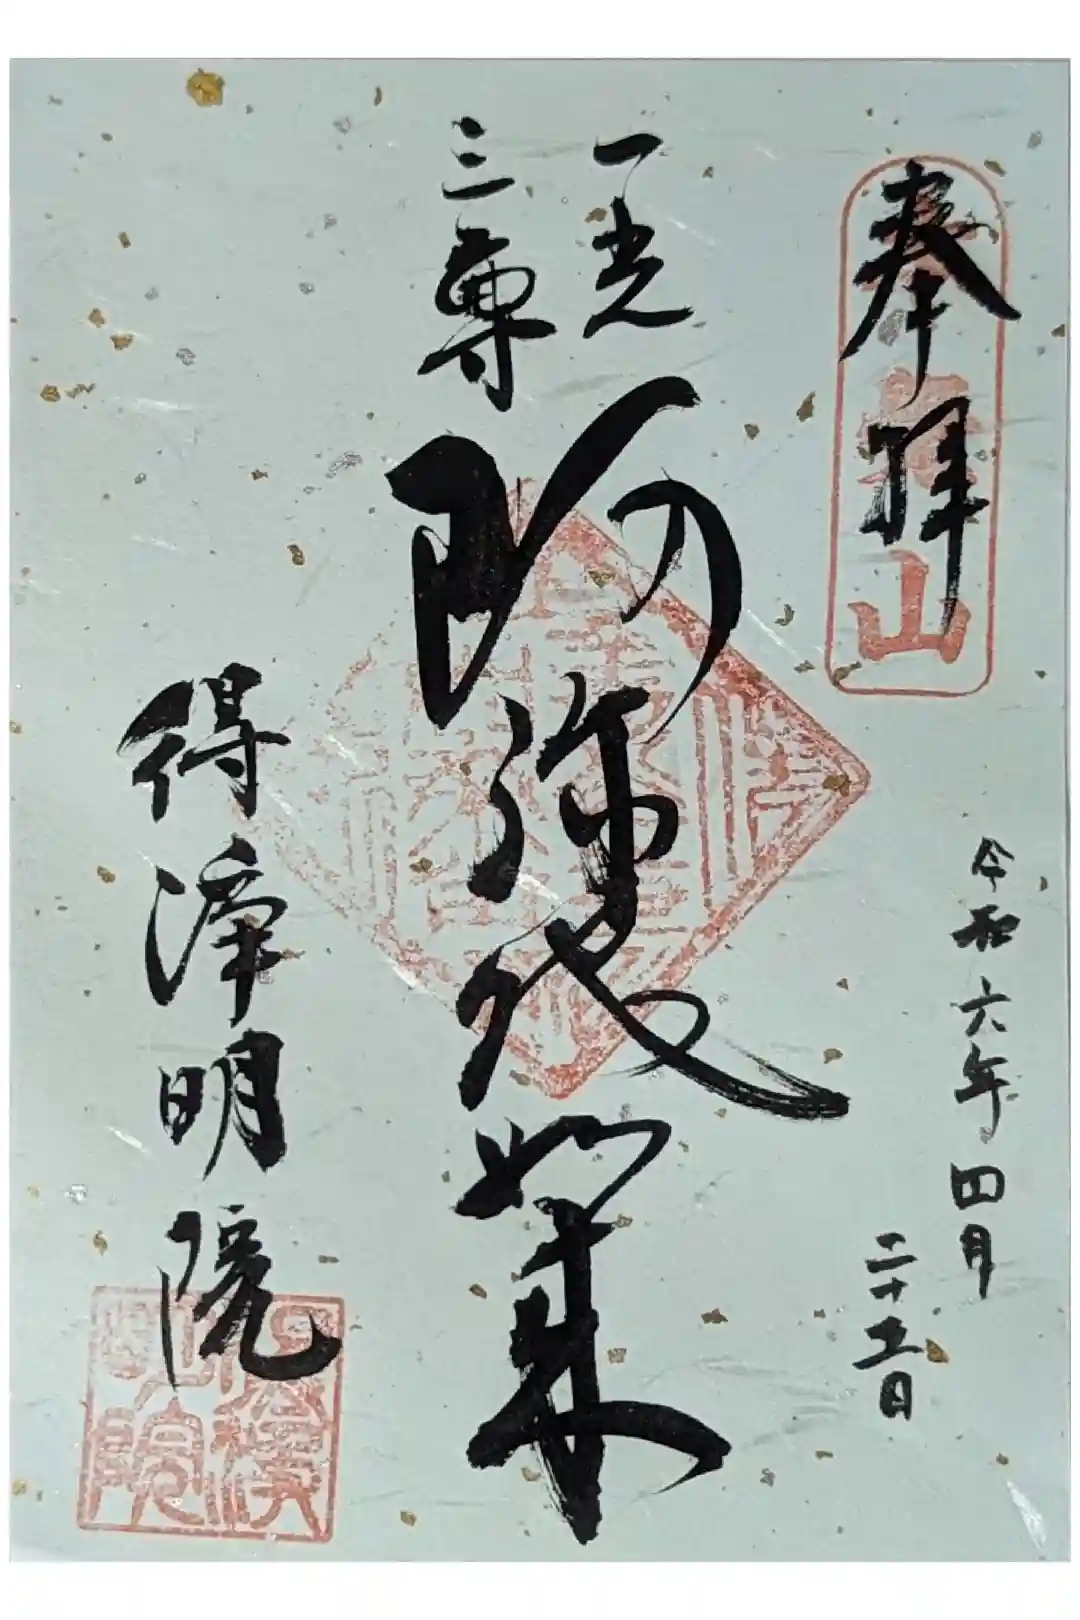 奉拝
山
令和六年四月
二十五日
一光
三尊
阿弥陀如来
得浄明院